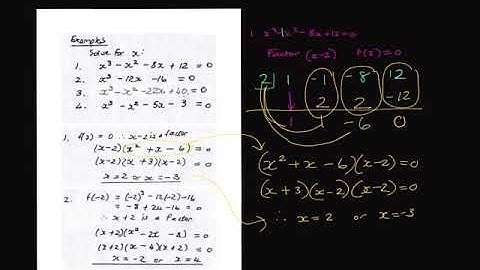 Examples
Solve for x:
1. x³ - x² - 8x + 12 = 0
2. x³ - 12x - 16 = 0
3. x³ - x² - 22x + 40 = 0
4. x³ - x² - 5x - 3 = 0
1. f(2) = 0 ∴ x-2 is a factor
(x-2)(x² + x - 6) = 0
(x-2)(x+3)(x-2) = 0
x = 2 or x = -3
2. f(-2) = (-2)³ - 12(-2) - 16
= -8 + 24 - 16 = 0
∴ x+2 is a factor
(x+2)(x² - 2x - 8) = 0
(x+2)(x-4)(x+2) = 0
x = -2 or x = 4
1. x³ - x² - 8x + 12 = 0
Factor (x-2) f(2) = 0
2 | 1 -1 -8 12
2 2 -12
1 1 -6 0
(x² + x - 6)(x-2) = 0
(x+3)(x-2)(x-2) = 0
∴ x = 2 or x = -3